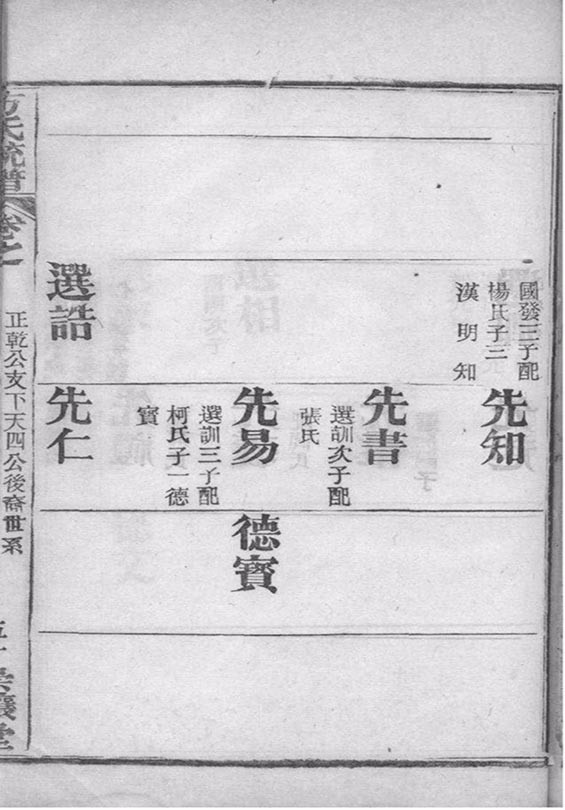 國發三子配
楊氏子三
漢明知
先知
先書
選訓次子配
張氏
先易
選訓三子配
柯氏子一德
寶
德寶
選誥
先仁
方氏統譜
卷之
正乾公支下天四公後裔世系